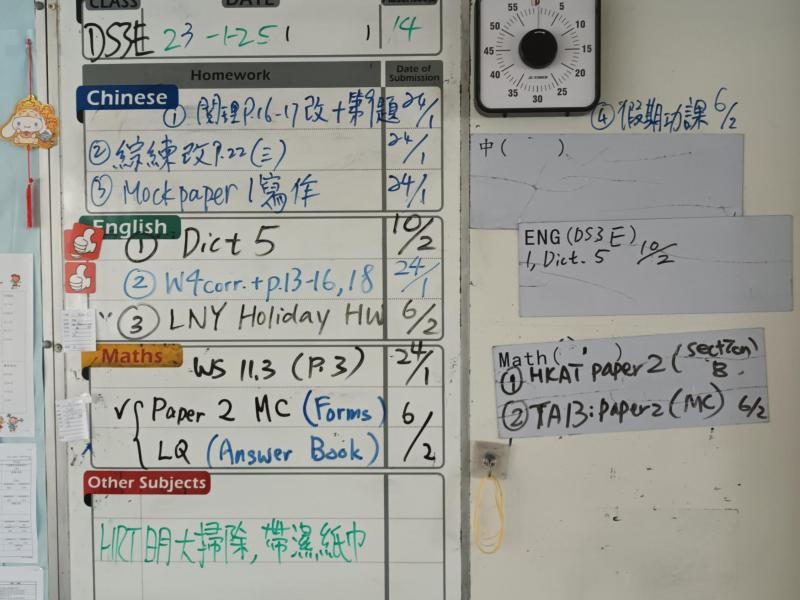 CLASS DATE
DS3E 23-1-25 ( ) 14
Homework Date of Submission
Chinese
① 閱理P.16-17改+第9題 24/1
② 綜練改P.22(三) 24/1
③ Mock paper 1 寫作 24/1
English
① Dict 5 10/2
② W4corr.+p.13-16, 18 24/1
③ LNY Holiday HW 6/2
Maths
WS 11.3 (P.3) 24/1
√ { Paper 2 MC (Forms) 6/2
LQ (Answer Book)
Other Subjects
HRT 明大掃除, 帶濕紙巾
55 5
50 10
45 15
40 20
35 30 25
④ 假期功課 6/2
中( )
ENG (DS3 E)
1, Dict. 5 10/2
Math ( )
① HKAT paper 2 (section B.
② TA13: Paper 2 (MC) 6/2